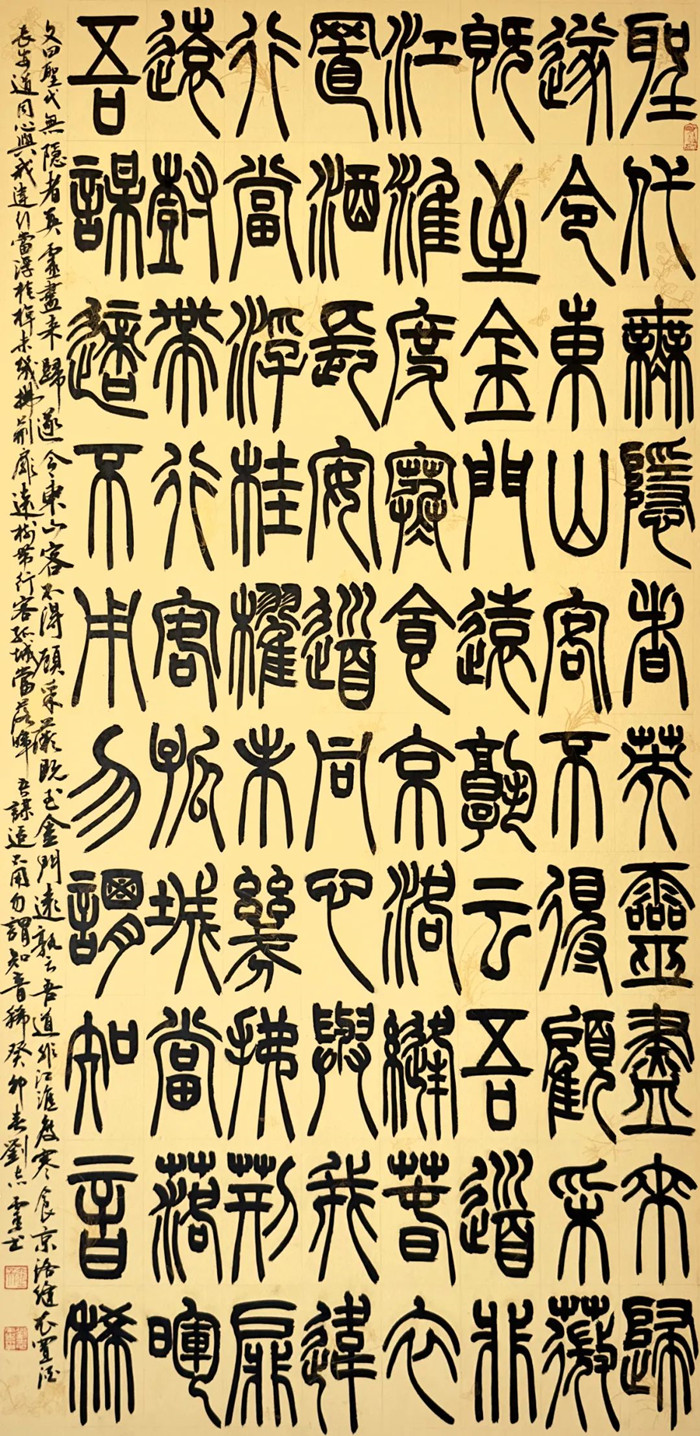 聖代無隱者英靈盡來歸
遂令東山客不得顧采薇
既至金門遠孰云吾道非
江淮度寒食京洛縫春衣
置酒長安道同心與我違
行當浮桂櫂未幾拂荊扉
遠樹帶行客孤城當落暉
吾謀適不用勿謂知音稀
文曰聖代無隱者英靈盡來歸遂令東山客不得顧采薇既至金門遠孰云吾道非江淮度寒食京洛縫衣置酒
長安道同心與我違行當浮桂棹未幾拂荊扉遠樹帶行客孤城當落暉吾謀適不用勿謂知音稀癸卯春劉書